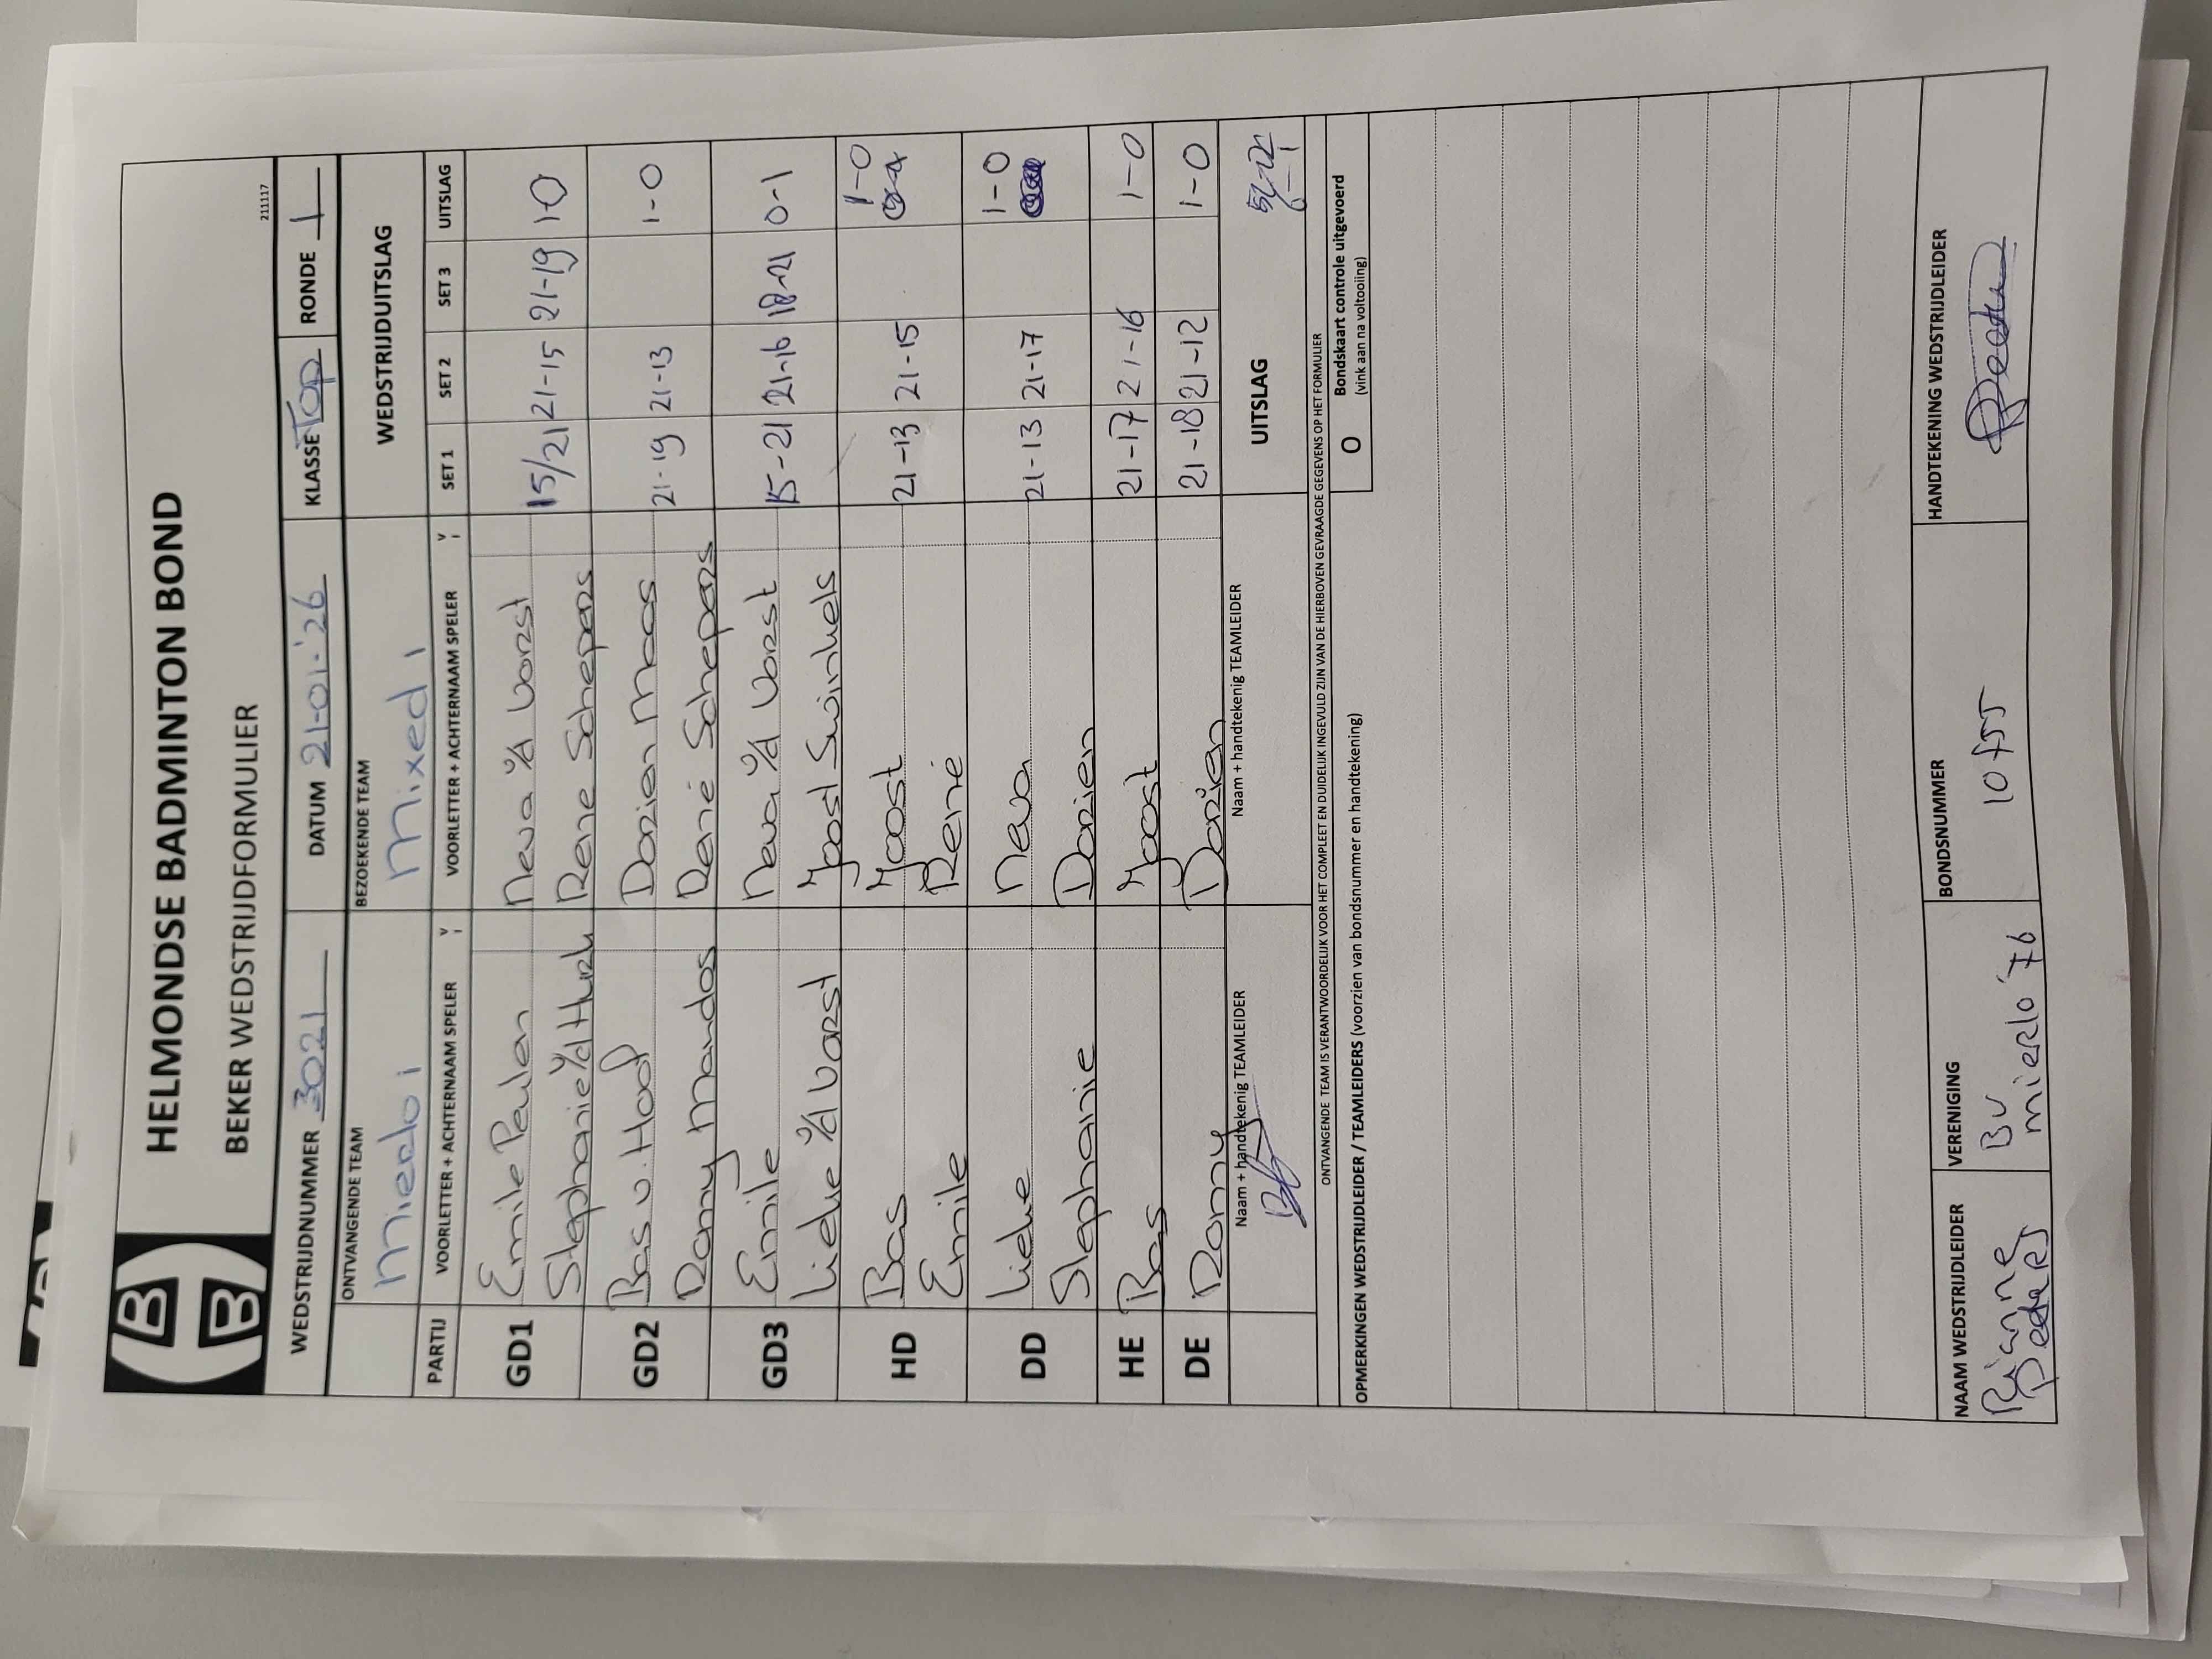 HELMONDSE BADMINTON BOND
BEKER WEDSTRIJDFORMULIER
211117
WEDSTRIJDNUMMER 3021 DATUM 21-01-'26 KLASSE Top RONDE 1
ONTVANGENDE TEAM BEZOEKENDE TEAM WEDSTRIJDUITSLAG
Mierlo 1 Mixed 1
PARTIJ VOORLETTER + ACHTERNAAM SPELER V VOORLETTER + ACHTERNAAM SPELER V SET 1 SET 2 SET 3 UITSLAG
GD1 Emile Paulen Neva v/d Vorst 15/21 21-15 21-19 1-0
Stephanie v/d Hurk Rene Schepers
GD2 Bas v. Hoof Dorien Maas 21-19 21-13 1-0
Danny Mandos René Schepers
GD3 Emile Neva v/d Vorst 15-21 21-16 18-21 0-1
Lieke v/d Vorst Joost Swinkels
HD Bas Joost 21-13 21-15 1-0
Emile René
DD Lieke Neva 21-13 21-17 1-0
Stephanie Dorien
HE Bas Joost 21-17 21-16 1-0
DE Romy Dorien 21-18 21-12 1-0
Naam + handtekenig TEAMLEIDER Naam + handtekenig TEAMLEIDER UITSLAG
6-1
ONTVANGENDE TEAM IS VERANTWOORDELIJK VOOR HET COMPLEET EN DUIDELIJK INGEVULD ZIJN VAN DE HIERBOVEN GEVRAAGDE GEGEVENS OP HET FORMULIER
OPMERKINGEN WEDSTRIJDLEIDER / TEAMLEIDERS (voorzien van bondsnummer en handtekening) O Bondskaart controle uitgevoerd
(vink aan na voltooiing)
NAAM WEDSTRIJDLEIDER VERENIGING BONDSNUMMER HANDTEKENING WEDSTRIJDLEIDER
Rianne BV 10755
Peeters Mierlo '76